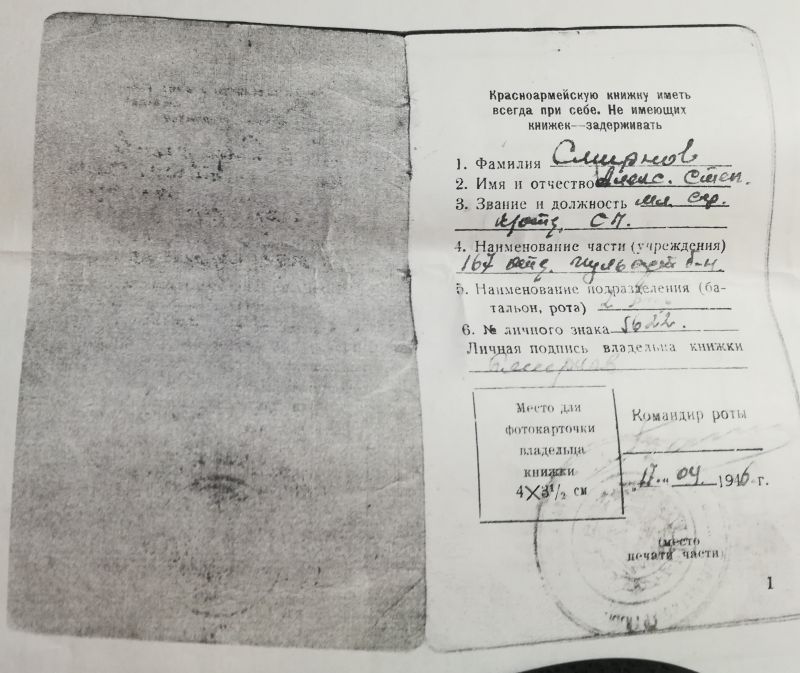 Красноармейскую книжку иметь
всегда при себе. Не имеющих
книжек—задерживать
1. Фамилия Смирнов
2. Имя и отчество Алекс. Степ.
3. Звание и должность мл. сер.
СП.
4. Наименование части (учреждения)
167 отд.
5. Наименование подразделения (ба-
тальон, рота) 2
6. № личного знака 5622.
Личная подпись владельца книжки
Смирнов
Место для
фотокарточки
владельца
книжки
4×3½ см
Командир роты
„17“ 04 1946 г.
(место
печати части)
1